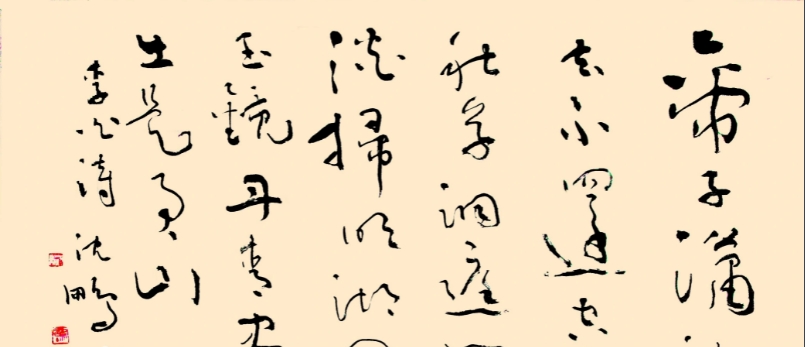 帝子瀟
去不還空
秋草洞庭
淡掃明湖
玉鏡丹青
出是君山
李白詩 沈鵬